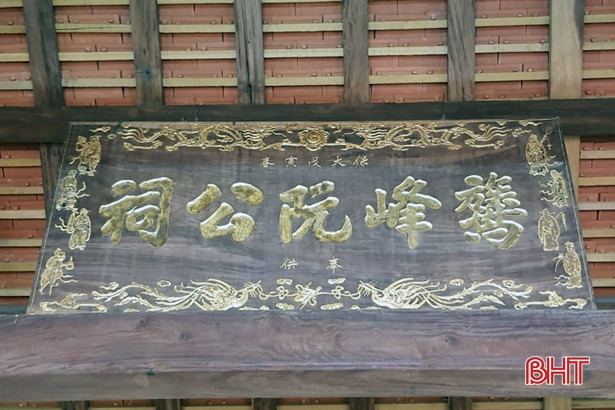 保大戊寅春
鷲峰阮公祠
奉供
BHT